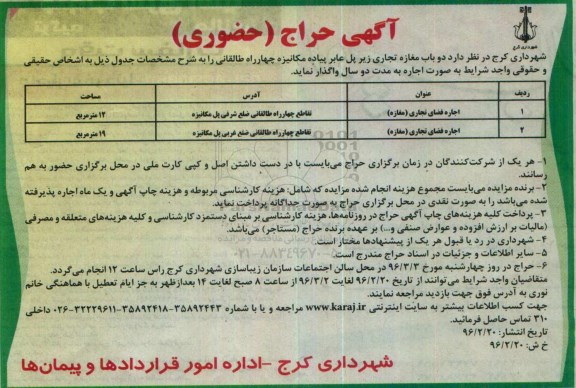 آگهی حراج (حضوری)
شهرداری کرج
شهرداری کرج در نظر دارد دو باب مغازه تجاری زیر پل عابر پیاده مکانیزه چهارراه طالقانی را به شرح مشخصات جدول ذیل به اشخاص حقیقی
و حقوقی واجد شرایط به صورت اجاره به مدت دو سال واگذار نماید.
ردیف عنوان آدرس مساحت
۱ اجاره فضای تجاری (مغازه) تقاطع چهارراه طالقانی ضلع شرقی پل مکانیزه ۱۲ مترمربع
۲ اجاره فضای تجاری (مغازه) تقاطع چهارراه طالقانی ضلع غربی پل مکانیزه ۱۹ مترمربع
۱- هر یک از شرکت‌کنندگان در زمان برگزاری حراج می‌بایست با در دست داشتن اصل و کپی کارت ملی در محل برگزاری حضور به هم
رسانند.
۲- برنده مزایده می‌بایست مجموع هزینه انجام شده مزایده که شامل: هزینه کارشناسی مربوطه و هزینه چاپ آگهی و یک ماه اجاره پذیرفته
شده می‌باشد را به صورت نقدی در محل برگزاری حراج به صورت جداگانه پرداخت نماید.
۳- پرداخت کلیه هزینه‌های چاپ آگهی حراج در روزنامه‌ها، هزینه کارشناسی بر مبنای دستمزد کارشناسی و کلیه هزینه‌های متعلقه و مصرفی
(مالیات بر ارزش افزوده و عوارض صنفی و...) بر عهده برنده حراج (مستاجر) می‌باشد.
۴- شهرداری در رد یا قبول هر یک از پیشنهادها مختار است.
۵- سایر اطلاعات و جزئیات در اسناد حراج مندرج است.
۶- حراج در روز چهارشنبه مورخ ۹۶/۳/۳ در محل سالن اجتماعات سازمان زیباسازی شهرداری کرج راس ساعت ۱۲ انجام می‌گردد.
متقاضیان واجد شرایط می‌توانند از تاریخ ۹۶/۲/۲۰ لغایت ۹۶/۳/۲ از ساعت ۸ صبح لغایت ۱۴ بعدازظهر به جز ایام تعطیل با هماهنگی خانم
نوری به آدرس فوق جهت بازدید مراجعه نمایند.
جهت کسب اطلاعات بیشتر به سایت اینترنتی www.karaj.ir مراجعه و یا با شماره ۳۵۸۹۲۴۴۳-۳۵۸۹۲۴۱۸-۳۲۲۲۹۶۱۱-۰۲۶ داخلی
۳۱۰ تماس حاصل فرمائید.
تاریخ انتشار: ۹۶/۲/۲۰
خ ش: ۹۶/۲/۲۰
شهرداری کرج -اداره امور قراردادها و پیمان‌ها